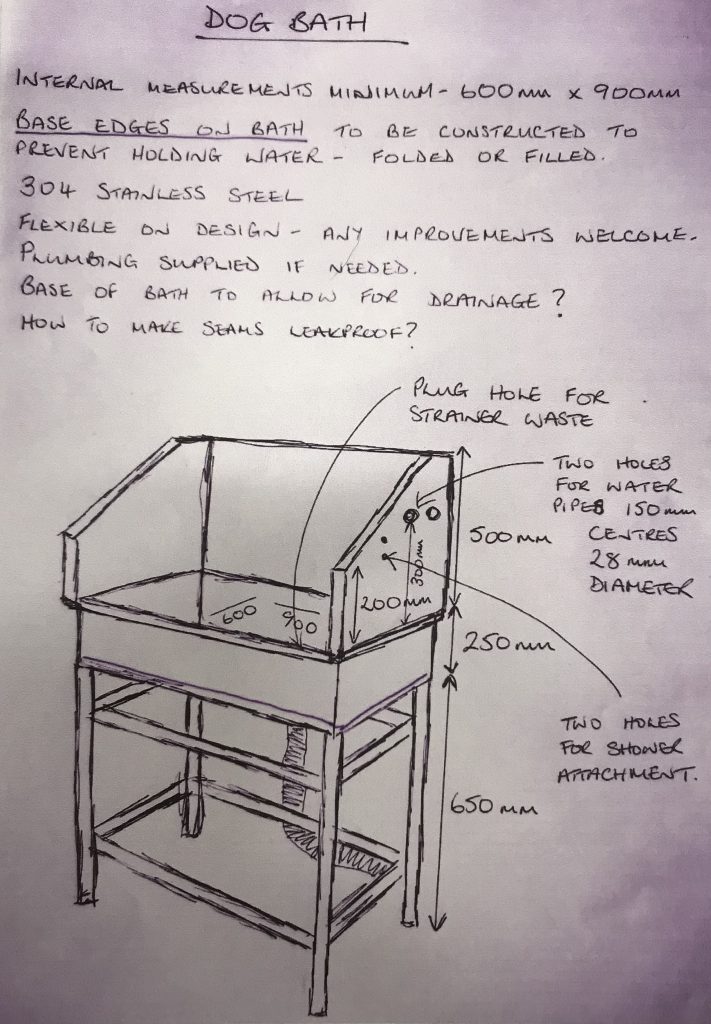 DOG BATH
INTERNAL MEASUREMENTS MINIMUM - 600mm x 900mm
BASE EDGES ON BATH TO BE CONSTRUCTED TO
PREVENT HOLDING WATER - FOLDED OR FILLED.
304 STAINLESS STEEL
FLEXIBLE ON DESIGN - ANY IMPROVEMENTS WELCOME.
PLUMBING SUPPLIED IF NEEDED.
BASE OF BATH TO ALLOW FOR DRAINAGE?
HOW TO MAKE SEAMS LEAKPROOF?
PLUG HOLE FOR
STRAINER WASTE
TWO HOLES
FOR WATER
PIPES 150mm
CENTRES
28mm
DIAMETER
500mm
300mm
200mm
600
900
250mm
TWO HOLES
FOR SHOWER
ATTACHMENT.
650mm